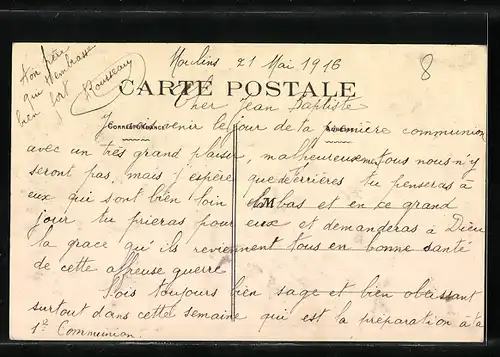 Moulins 21 Mai 1916
8
Ton frère
qui t'embrasse
bien fort
Rousseau
CARTE POSTALE
Cher Jean Baptiste
CORRESPONDANCE
ADRESSE
venir le jour de ta première communion
avec un très grand plaisir, malheureusement tous nous n'y
seront pas, mais j'espère que derrières tu penseras à
eux qui sont bien loin là bas et en ce grand
M
jour tu prieras pour eux et demanderas à Dieu
la grace qu'ils reviennent tous en bonne santé
de cette affreuse guerre
Sois toujours bien sage et bien obeissant
surtout dans cette semaine qui est la préparation à ta
1re Communion